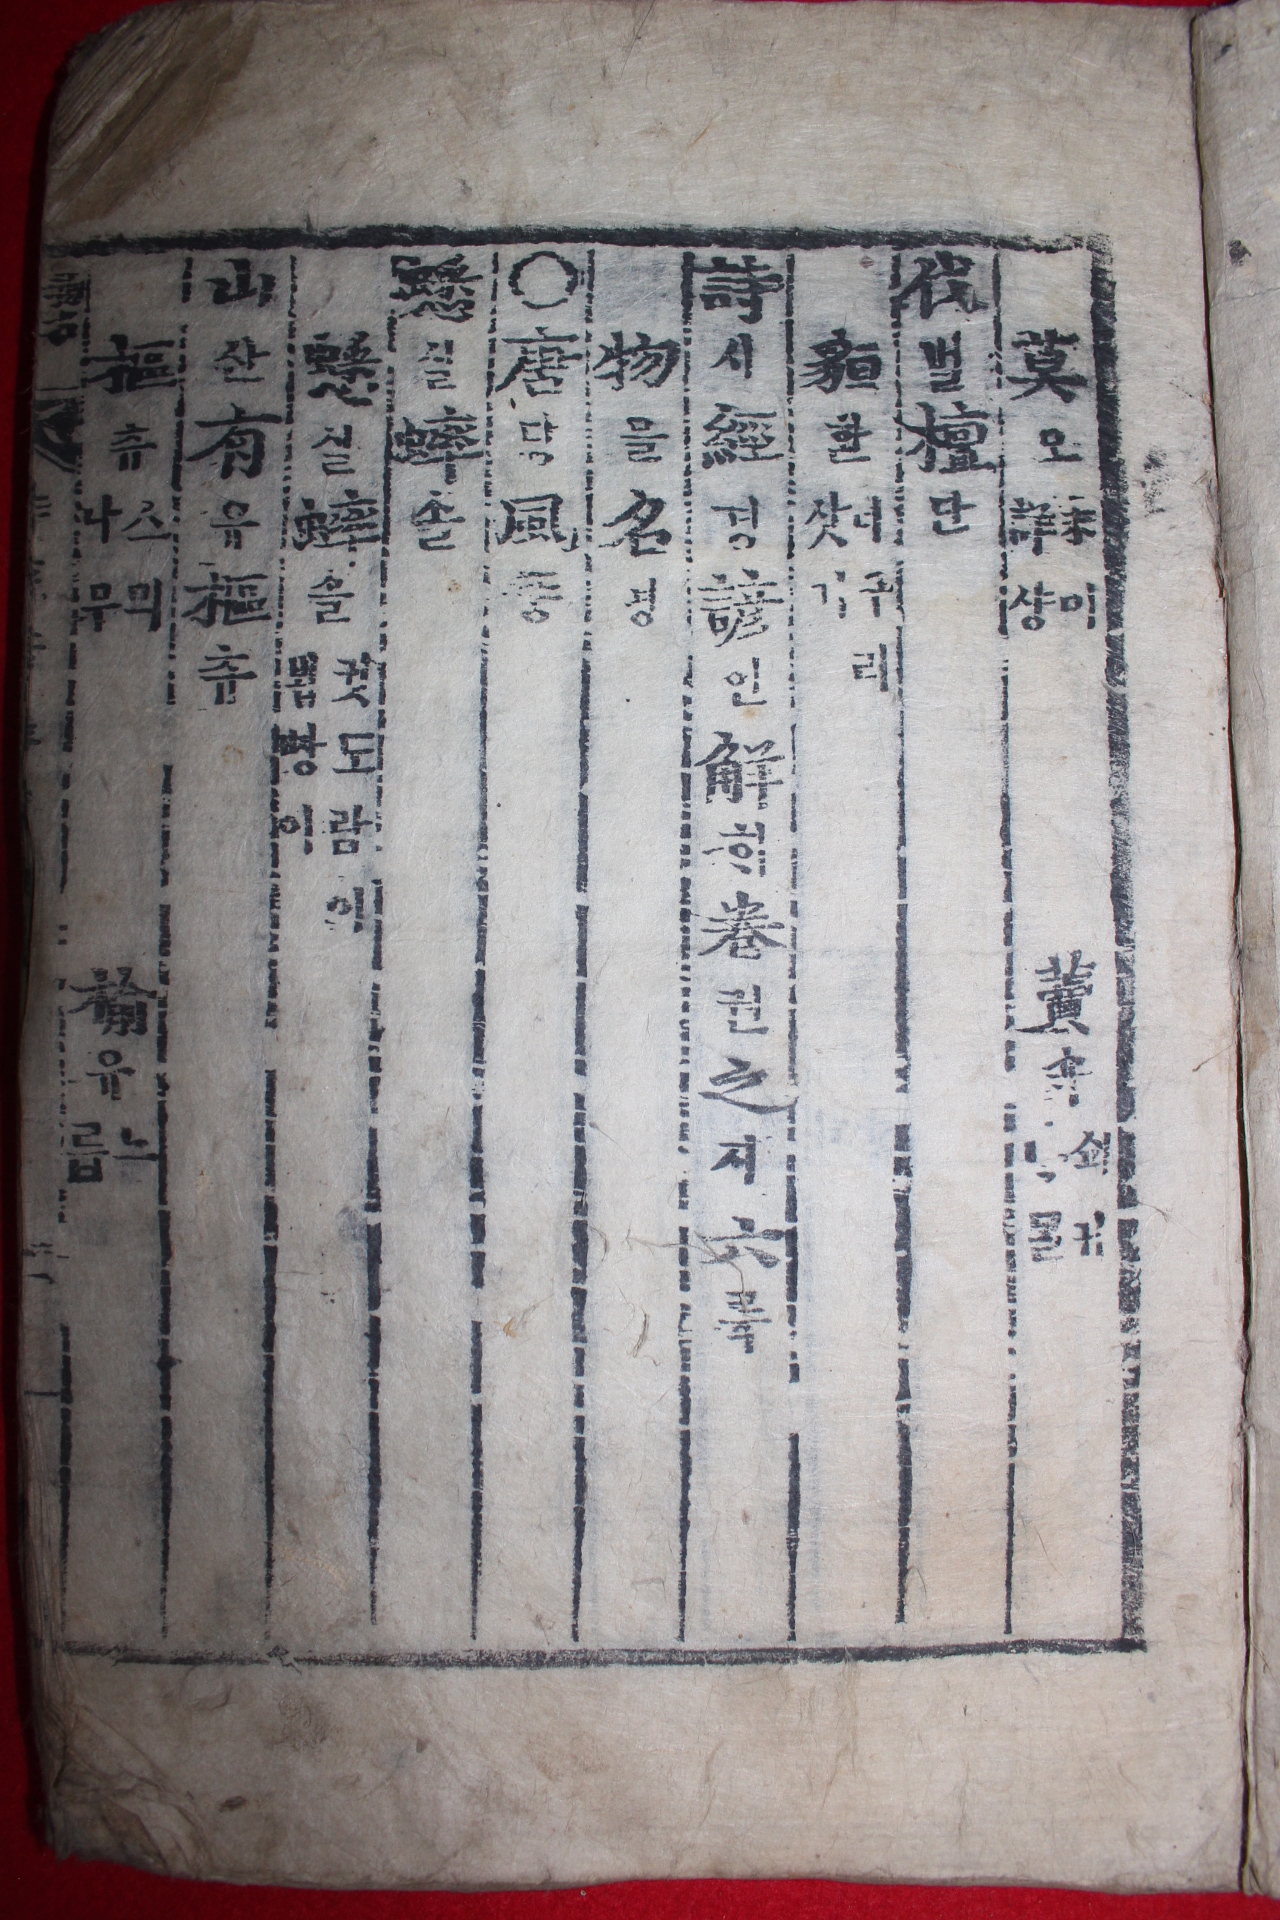 莫모未미詳상 藚쇽쇠귀ᄂᆞ믈
伐벌檀단
貆환너구리삿기
詩시經경諺언解ᄒᆡ卷권之지六륙
物믈名명
○唐당風풍
蟋실蟀솔
蟋실蟀솔귓도람이 뵙ᄧᅡᆼ이
山산有유樞츄
樞츄스믜나무 楡유느릅